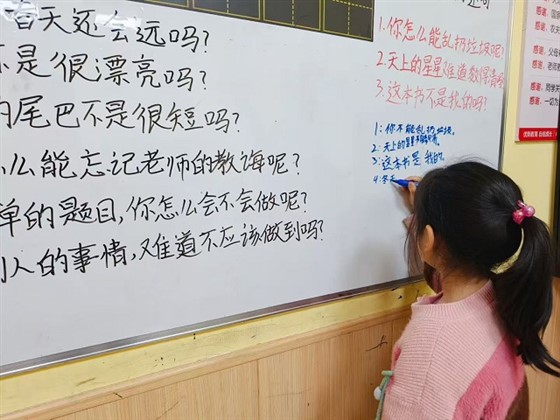 春天还会远吗？
不是很漂亮吗？
的尾巴不是很短吗？
么能忘记老师的教诲呢？
单的题目，你怎么会不会做呢？
别人的事情，难道不应该做到吗？
1.你怎么能乱扔垃圾呢？
2.天上的星星难道数得清吗？
3.这本书不是我的吗？
1：你不能乱扔垃圾。
2：天上的星星
3：这本书是我的。
4：冬天
感谢
感谢
感谢
感谢
感谢